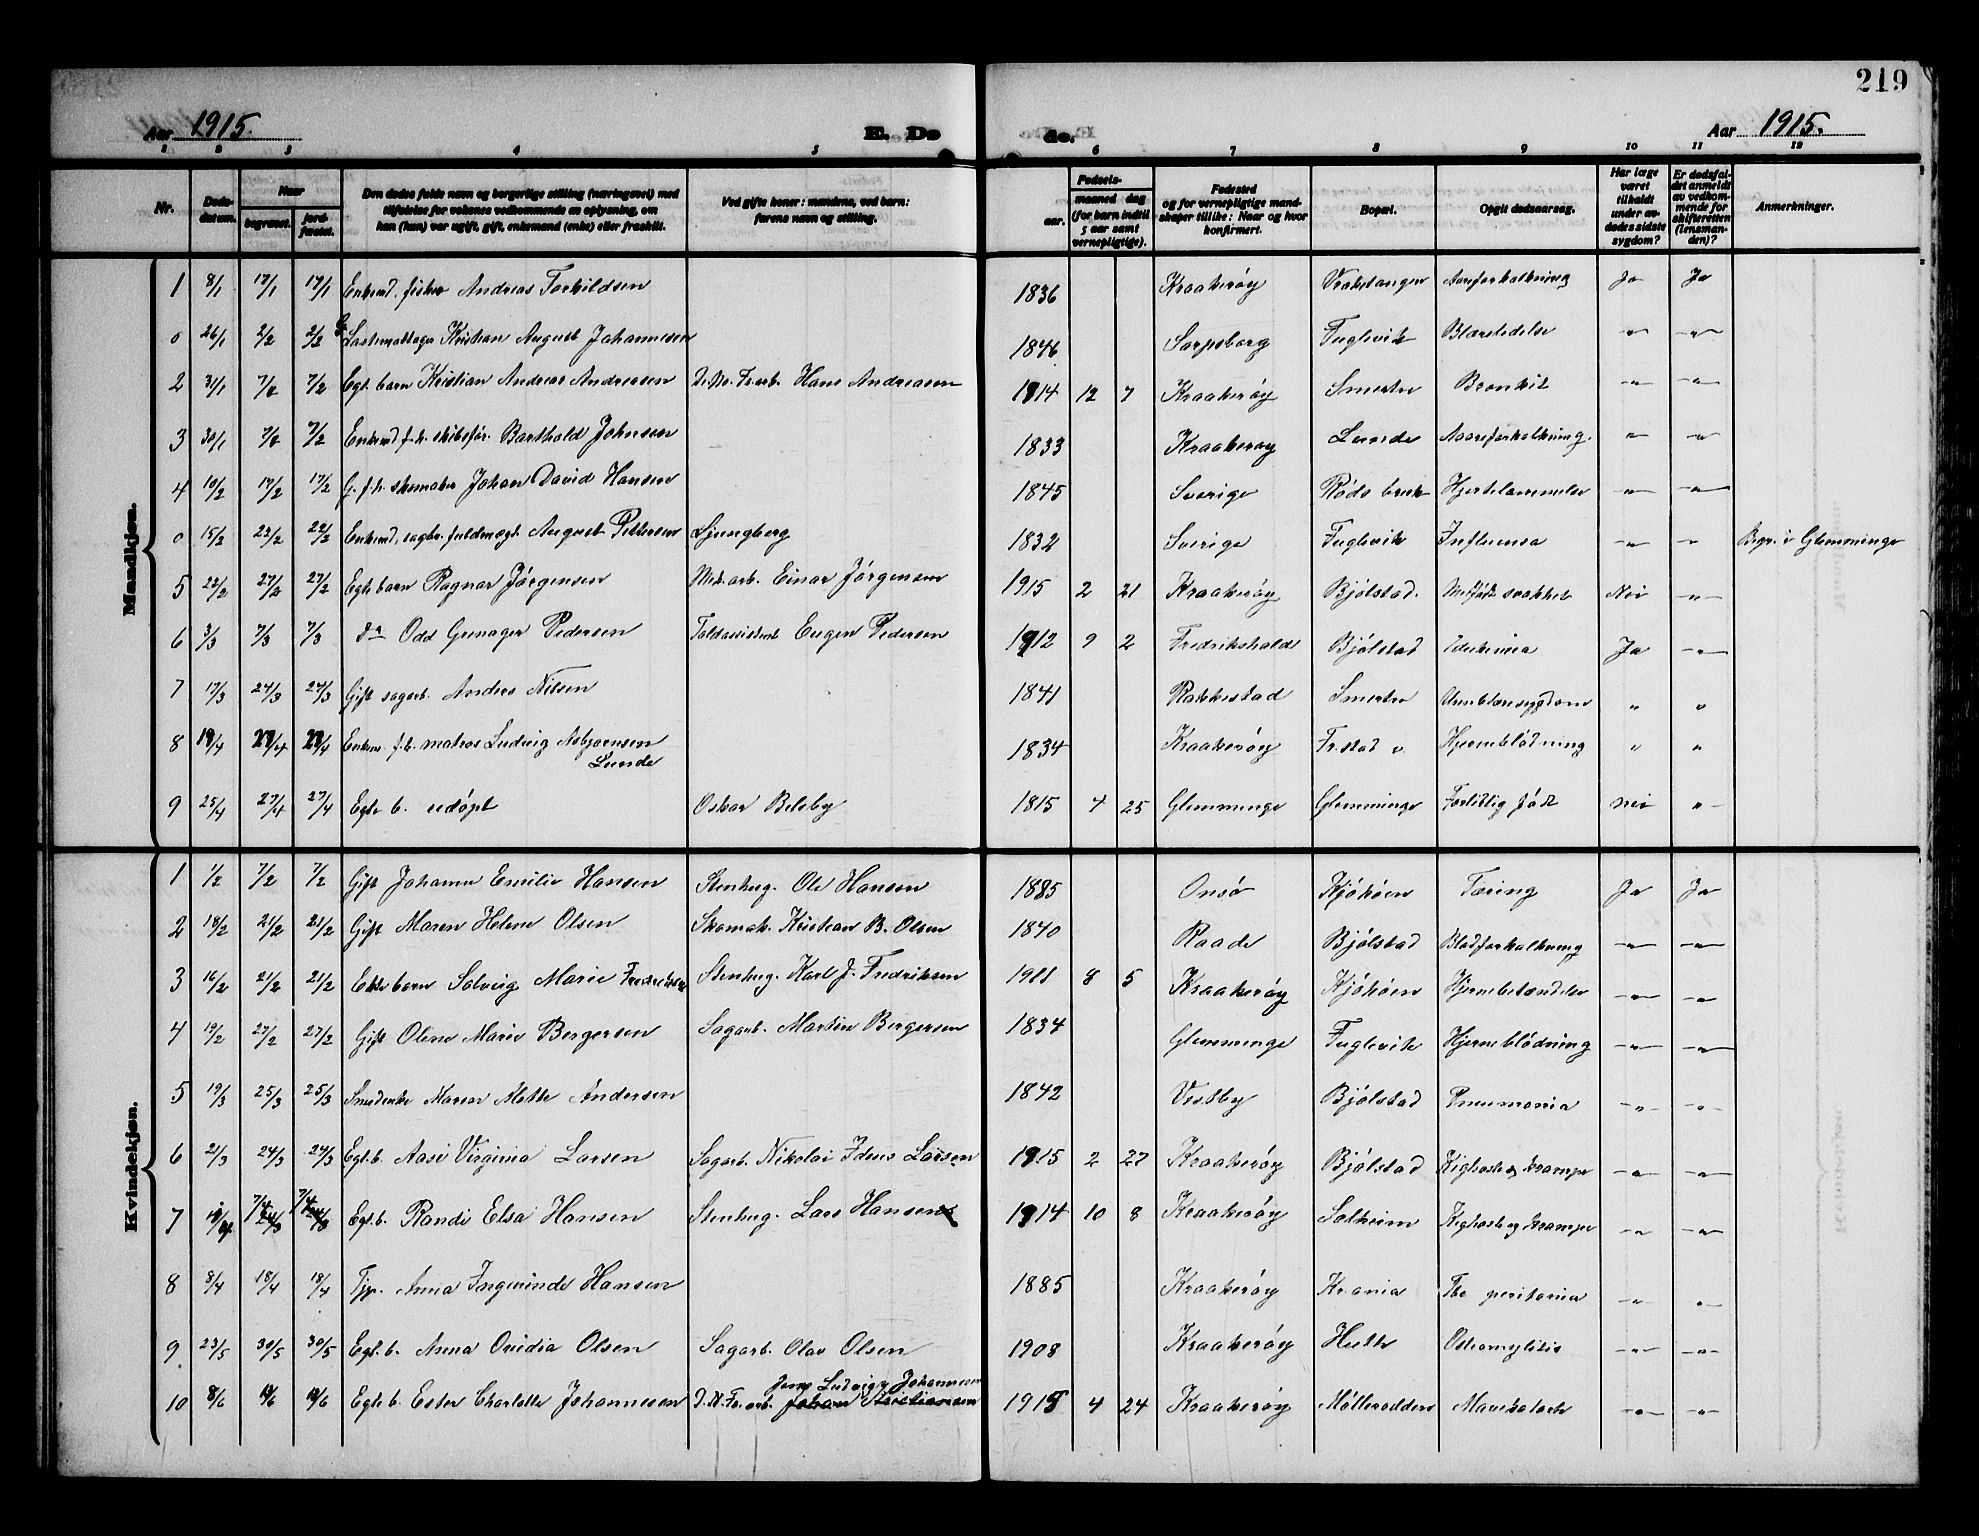 219
Aar 1915. E. Dø de. Aar 1915.
1 2 3 4 5 6 7 8 9 10 11 12
Nr. Døds-datum. Naar begravet. jord-fæstet. Den dødes fulde navn og borgerlige stilling (næringsvei) med tilføielse for voksnes vedkommende av oplysning, om han (hun) var ugift, gift, enkemand (enke) eller fraskilt. Ved gifte koner: mandens, ved barn: farens navn og stilling. Fødsels- aar. maaned dag (for barn indtil 5 aar samt vernepligtige). Fødested og for vernepligtige mand-skaper tillike: Naar og hvor konfirmert. Bopæl. Opgit dødsaarsag. Har læge været tilkaldt under av-dødes sidste sygdom? Er dødsfal-det anmeldt av vedkom-mende for skifteretten (lensman-den)? Anmerkninger.
Mandkjøn.
1 8/1 17/1 17/1 Enkemd. fisker Andreas Torkildsen 1836 Kraakerøy Aareforkalkning Ja Ja
0 26/1 2/2 2/2 G. Lastemottager Kristian August Johannesen 1846 Sarpsborg Fuglevik Blærelidelse -"- -"-
2 31/1 7/2 7/2 Egt. barn Kristian Andreas Andreasen Hans Andreasen 1914 12 7 Kraakerøy Smertu Bronkit -"- -"-
3 30/1 7/2 7/2 Enkemd f.h. skibsfør. Barthold Johnsen 1833 Kraakerøy Lunde Aareforkalkning. -"- -"-
4 10/2 17/2 17/2 G. f.h. skomaker Johan David Hansen 1845 Sverige Røds bruk Hjertelammelse -"- -"-
0 15/2 22/2 22/2 Enkemd. sagbr. fuldmegt. August Pettersen Ljungberg 1832 Sverige Fuglevik Influensa -"- -"- Begr. i Glemminge
5 22/2 27/2 27/2 Egte barn Ragnar Jørgensen Mek. arb. Einar Jørgensen 1915 2 21 Kraakerøy Bjølstad. Medfødt svakhet Nei -"-
6 3/3 7/3 7/3 do Odd Gunnager Pedersen Toldassistent Eugen Pedersen 1912 9 2 Fredrikshald Bjølstad Ja -"-
7 17/3 24/3 24/3 Gift sagarb. Anders Nilsen 1841 Rakkestad Smertu " "
8 19/4 27/4 27/4 Enkem. f.h. matros Ludvig Asbjørnsen
Lunde 1834 Kraakerøy Fr.stad v. Hjerneblødning " "
9 25/4 27/4 27/4 Egte b. udøpt Oskar Belsby 1815 4 25 Glemminge Glemminge Fortidlig født nei "
Kvindekjøn.
1 1/2 7/2 7/2 Gift Johanne Emilie Hansen Stenhug. Ole Hansen 1885 Onsø Kjøkøen Tæring Ja Ja
2 18/2 21/2 21/2 Gift Maren Helene Olsen Skomak. Kristian B. Olsen 1840 Raade Bjølstad Blodforkalkning -"- -"-
3 16/2 21/2 21/2 Ekte barn Solveig Marie Fredriksen Stenhug. Karl J. Fredriksen 1911 8 5 Kraakerøy Kjøkøen Hjernebetændelse -"- -"-
4 19/2 27/2 27/2 Gift Olene Marie Bergersen Sagarb. Martin Bergersen 1834 Glemminge Fuglevik Hjerneblødning -"- -"-
5 19/3 25/3 25/3 Smedenke Maren Mathe Andersen 1842 Vestby Bjølstad Pneumonia -"- -"-
6 2/3 24/3 24/3 Egt. b. Aase Virginia Larsen Sagarb. Nikolai Ideus Larsen 1915 2 27 Kraakerøy Bjølstad Kighoste og krampe -"- -"-
7 7/4 7/4 Egt. b. Randi Elsa Hansen Stenhug. Lars Hansen 1914 10 8 Kraakerøy Solheim Kighoste og krampe -"- -"-
8 8/4 18/4 18/4 Tjp. Anna Ingerinde Hansen 1885 Kraakerøy Krania Tbc peritonia -"- -"-
9 23/5 30/5 30/5 Egt. b. Anna Ovidia Olsen Sagarb. Olav Olsen 1908 Kraakerøy Hutte Osteomylitis -"- -"-
Jens Ludvig Johannesen
10 8/6 Egte b. Ester Charlotte Johannesen Johan Kristiansen 1915 4 24 Kraakerøy Møllerodden Mavekatarh -"- -"-